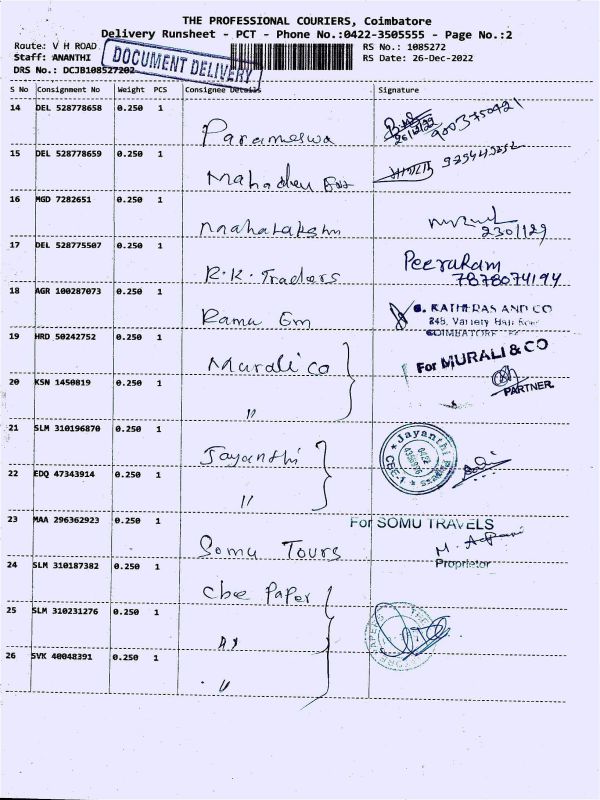 THE PROFESSIONAL COURIERS, Coimbatore
Delivery Runsheet - PCT - Phone No.:0422-3505555 - Page No.:2
Route: V H ROAD
RS No.: 1085272
Staff: ANANTHI
RS Date: 26-Dec-2022
DRS No.: DCJB108527202
DOCUMENT DELIVERY
S No Consignment No Weight PCS Consignee Details Signature
14 DEL 528778658 0.250 1
Parameswa
26/12/22
15 DEL 528778659 0.250 1
Mahadev
16 MGD 7282651 0.250 1
Mahalakshm
17 DEL 528775507 0.250 1
R.K. Traders
Peeraram
7878074194
18 AGR 100287073 0.250 1
Ramu Gm
AND CO
19 HRD 50242752 0.250 1
Murali co
For MURALI & CO
20 KSN 1450819 0.250 1
"
PARTNER.
21 SLM 310196870 0.250 1
Jayanthi
Jayanthi
CBE-1
22 EDQ 47343914 0.250 1
"
23 MAA 296362923 0.250 1
Somu Tours
For SOMU TRAVELS
Proprietor
24 SLM 310187382 0.250 1
cbe Paper
25 SLM 310231276 0.250 1
"
26 SVK 40048391 0.250 1
"